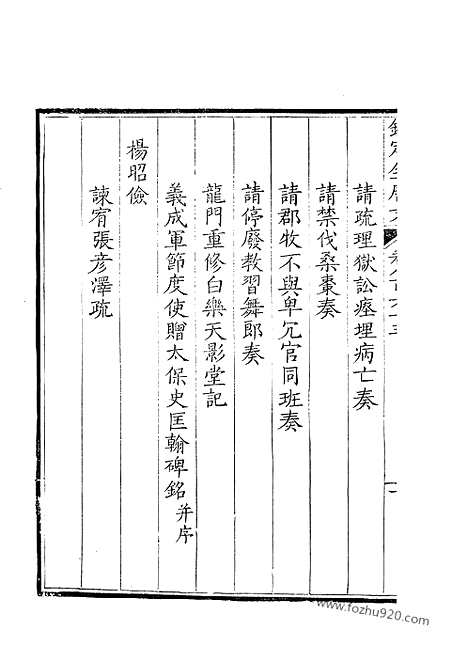 請疏理獄訟瘞埋病亡奏
請禁伐桑棗奏
請郡牧不與卑冗官同班奏
請停廢教習舞郎奏
龍門重修白樂天影堂記
義成軍節度使贈太保史匡翰碑銘 并序
楊昭儉
諫宥張彥澤疏
www.fozhu920.com